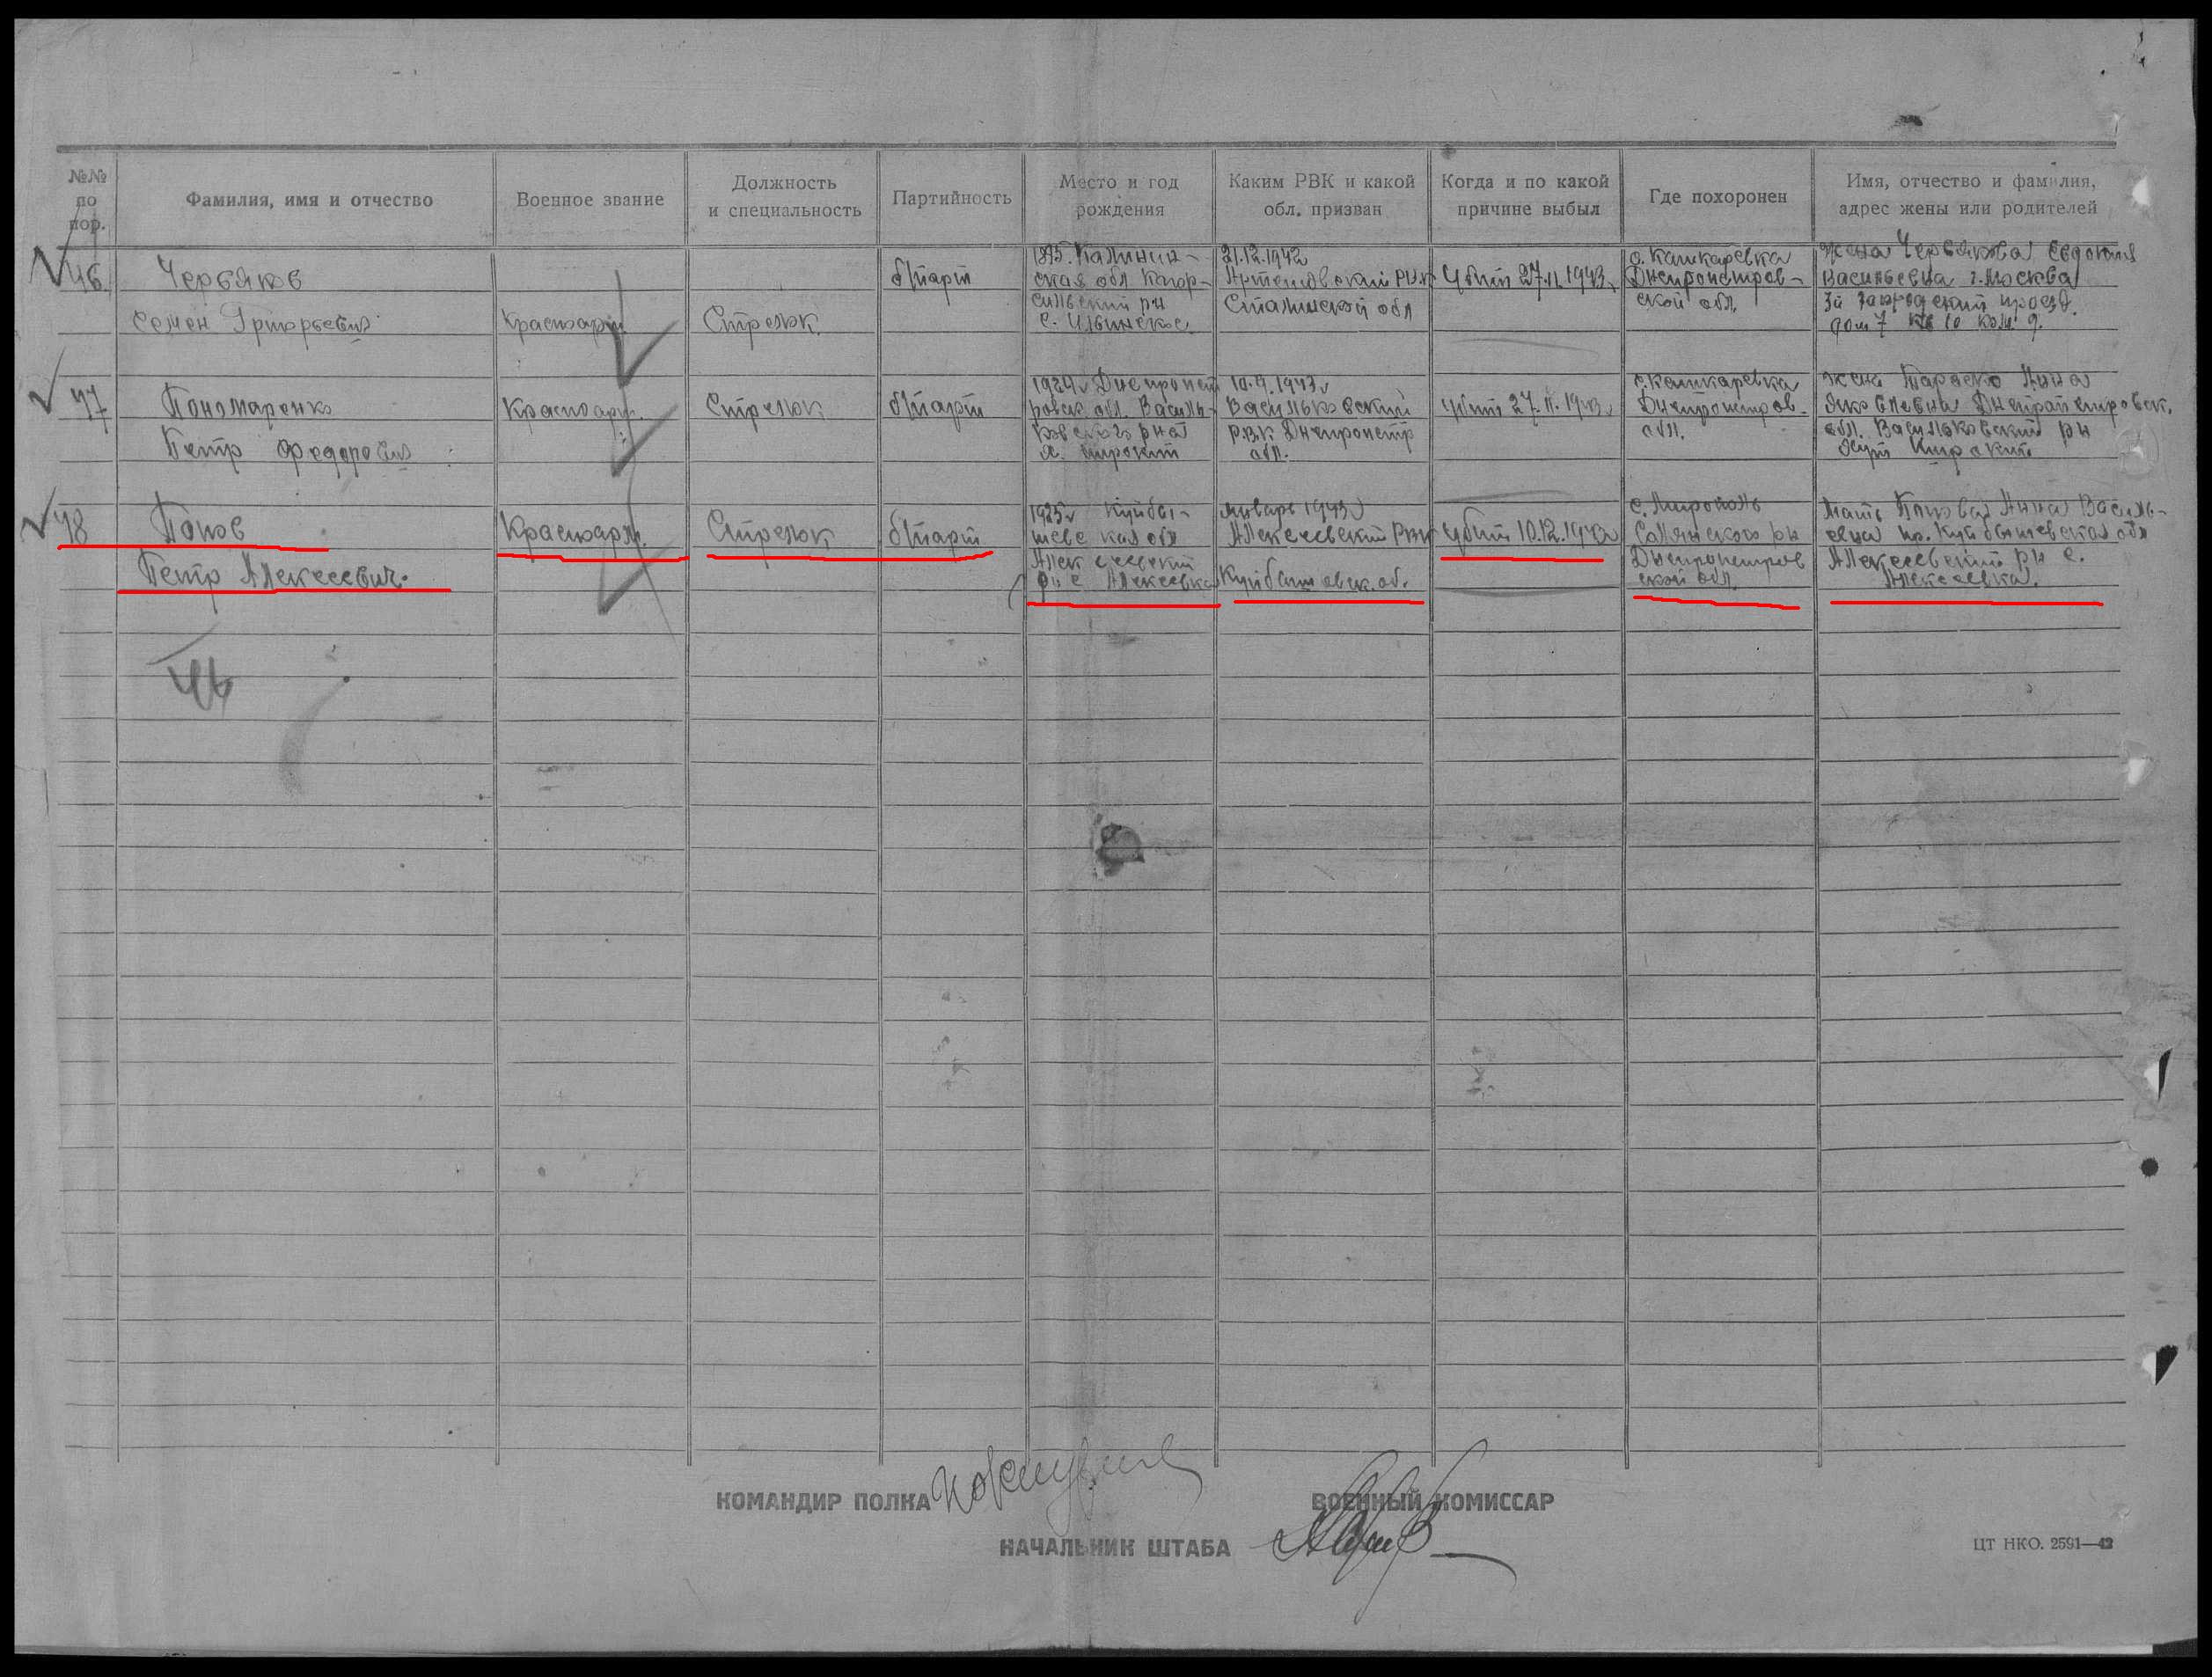 №№ по пор.
Фамилия, имя и отчество
Военное звание
Должность и специальность
Партийность
Место и год рождения
Каким РВК и какой обл. призван
Когда и по какой причине выбыл
Где похоронен
Имя, отчество и фамилия, адрес жены или родителей
46
Червяков
Семен Григорьевич
Красноарм.
Стрелок
б/парт
1895 Калинин-
ская обл
рн
с. Ильинское.
31.12.1942
Артемовский РВК
Сталинской обл
Убит 27.11.1943
с. Кашкаревка
Днепропетров-
ской обл.
Жена Червякова Евдокия
Васильевна г. Москва
проезд.
дом 7 кв 10 ком. 9.
47
Пономаренко
Петр Федорович
Красноарм.
Стрелок
б/парт
1924 Днепропет
ровск. обл. Василь-
ковского рна
х. Широкий
10.9.1943
Васильковский
Р.В.К Днепропетр
обл.
Убит 27.11.1943
с. Кашкаревка
Днепропетров-
обл.
Жена Анна
Яковлевна Днепропетровск.
обл. Васильковский рн
хут
48
Попов
Петр Алексеевич.
Красноарм.
Стрелок
б/парт
1925 Куйбы-
шевская обл
Алексеевский
рн с Алексеевка
Январь 1943
Алексеевский РВК
Куйбышевск. об.
Убит 10.12.1943
с. Мирополь
Солянского рн
Днепропетров
ской обл.
Мать Попова Анна Василь-
евна пр. Куйбышевская обл
Алексеевский рн с.
Алексеевка.
КОМАНДИР ПОЛКА
ВОЕННЫЙ КОМИССАР
НАЧАЛЬНИК ШТАБА
ЦТ НКО. 2591—42